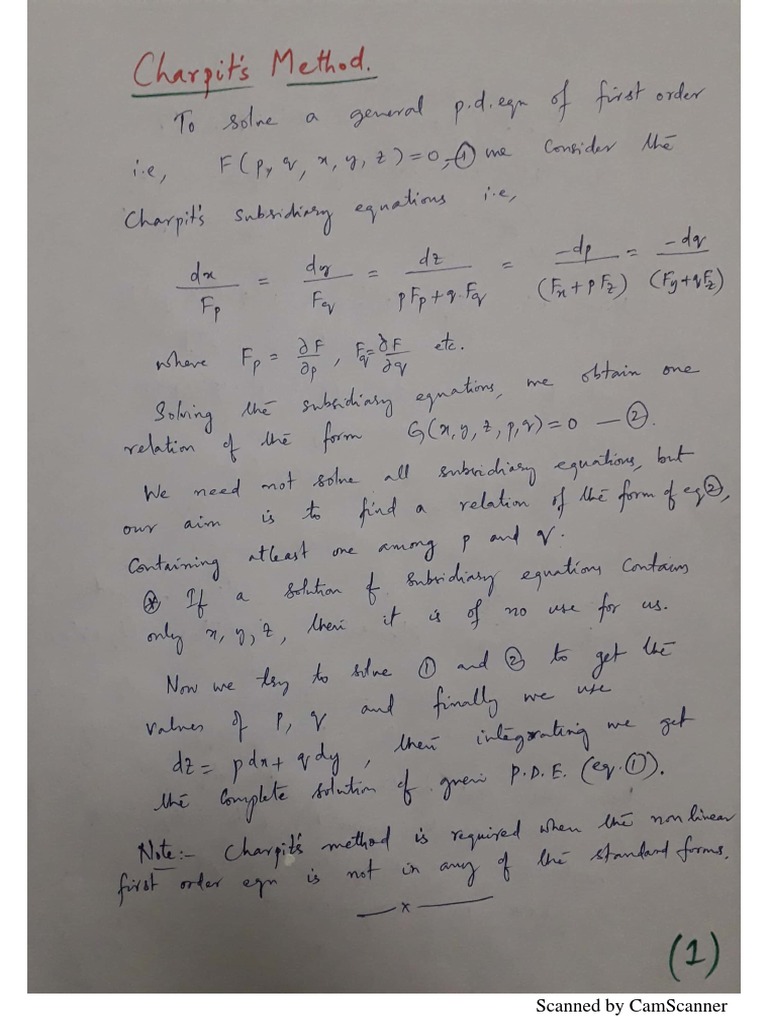 Charpit's Method.
To solve a general p.d.eqn of first order
i.e, F(p, q, x, y, z) = 0, —① we consider the
Charpit's subsidiary equations i.e,
dx/F_p = dy/F_q = dz/(pF_p + q.F_q) = -dp/(F_x + pF_z) = -dq/(F_y + qF_z)
where F_p = ∂F/∂p, F_q = ∂F/∂q etc.
Solving the subsidiary equations, we obtain one
relation of the form G(x, y, z, p, q) = 0 — ②.
We need not solve all subsidiary equations, but
our aim is to find a relation of the form of eq②,
containing atleast one among p and q.
⊛ If a solution of subsidiary equations contains
only x, y, z, then it is of no use for us.
Now we try to solve ① and ② to get the
values of p, q and finally we use
dz = pdx + qdy, then integrating we get
the complete solution of given P.D.E. (eq.①).
Note:- Charpit's method is required when the non linear
first order eqn is not in any of the standard forms.
—x—
(1)
Scanned by CamScanner